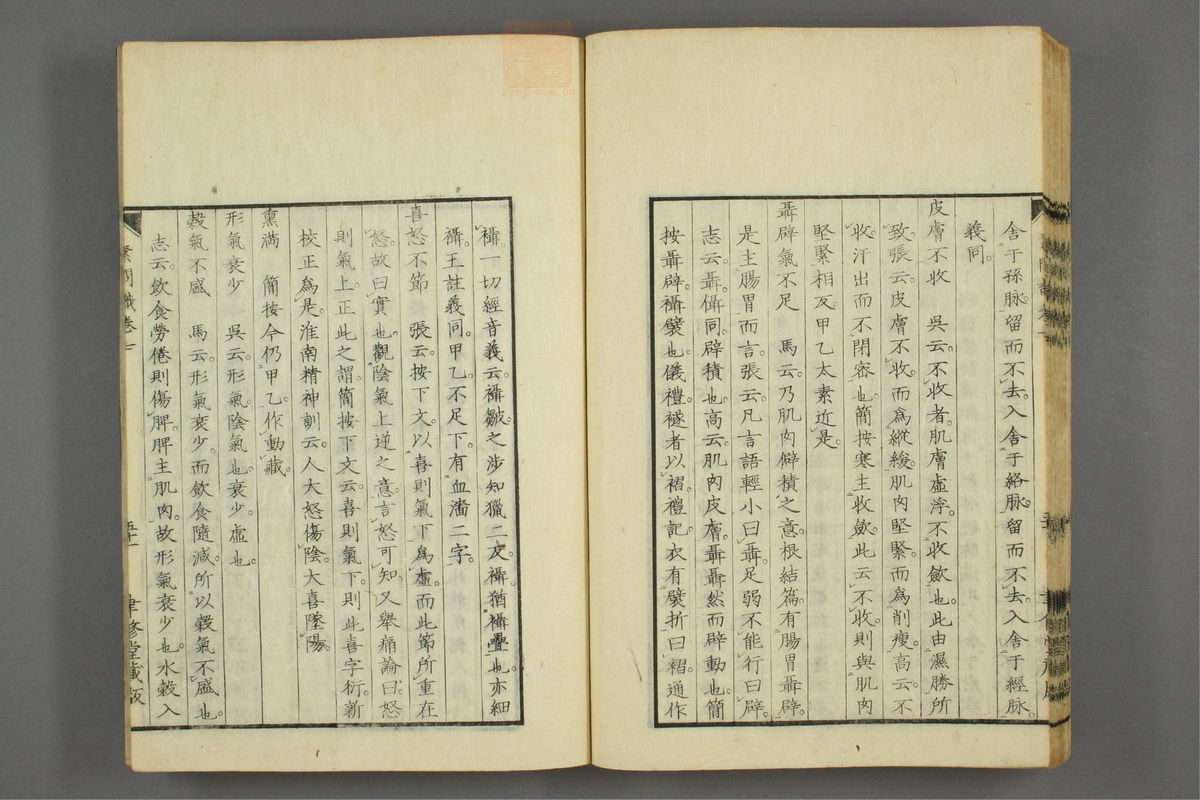 舍于孫脉。留而不去。入舍于絡脉。留而不去。入舍于經脉。
義同。
皮膚不收　吳云。不收者。肌膚虛浮。不收斂也。此由濕勝所
致。張云。皮膚不收。而爲縱緩。肌肉堅緊。而爲削瘦。高云。不
收。汗出而不閉密也。簡按寒主收斂。此云不收。則與肌肉
堅緊相反。甲乙太素近是。
聶辟氣不足　馬云。乃肌肉僻積之意。根結篇。有腸胃聶辟。
是主腸胃而言。張云。凡言語輕小曰聶。足弱不能行曰辟。
志云。聶。儑同。辟積也。高云。肌肉皮膚。聶聶然而辟動也。簡
按聶辟。襵襞也。儀禮。襚者以褶。禮記。衣有襞折曰褶。通作
襵。一切經音義云。襵皺。之涉知獵二反。襵猶襵疊也。亦細
襵。王註義同。甲乙。不足下。有血濇二字。
喜怒不節　張云。按下文。以喜則氣下爲虛。而此節所重在
怒。故曰實也。觀陰氣上逆之意。言怒可知。又舉痛論曰。怒
則氣上。正此之謂。簡按下文云。喜則氣下。則此喜字衍。新
校正爲是。淮南精神訓云。人大怒傷陰。大喜墜陽。
熏滿　簡按今仍甲乙。作動藏。
形氣衰少　吳云。形氣。陰氣也。衰少。虛也。
穀氣不盛　馬云。形氣衰少。而飲食隨減。所以穀氣不盛也。
志云。飲食勞倦則傷脾。脾主肌肉。故形氣衰少也。水穀入
素問識卷七
聿修堂藏版